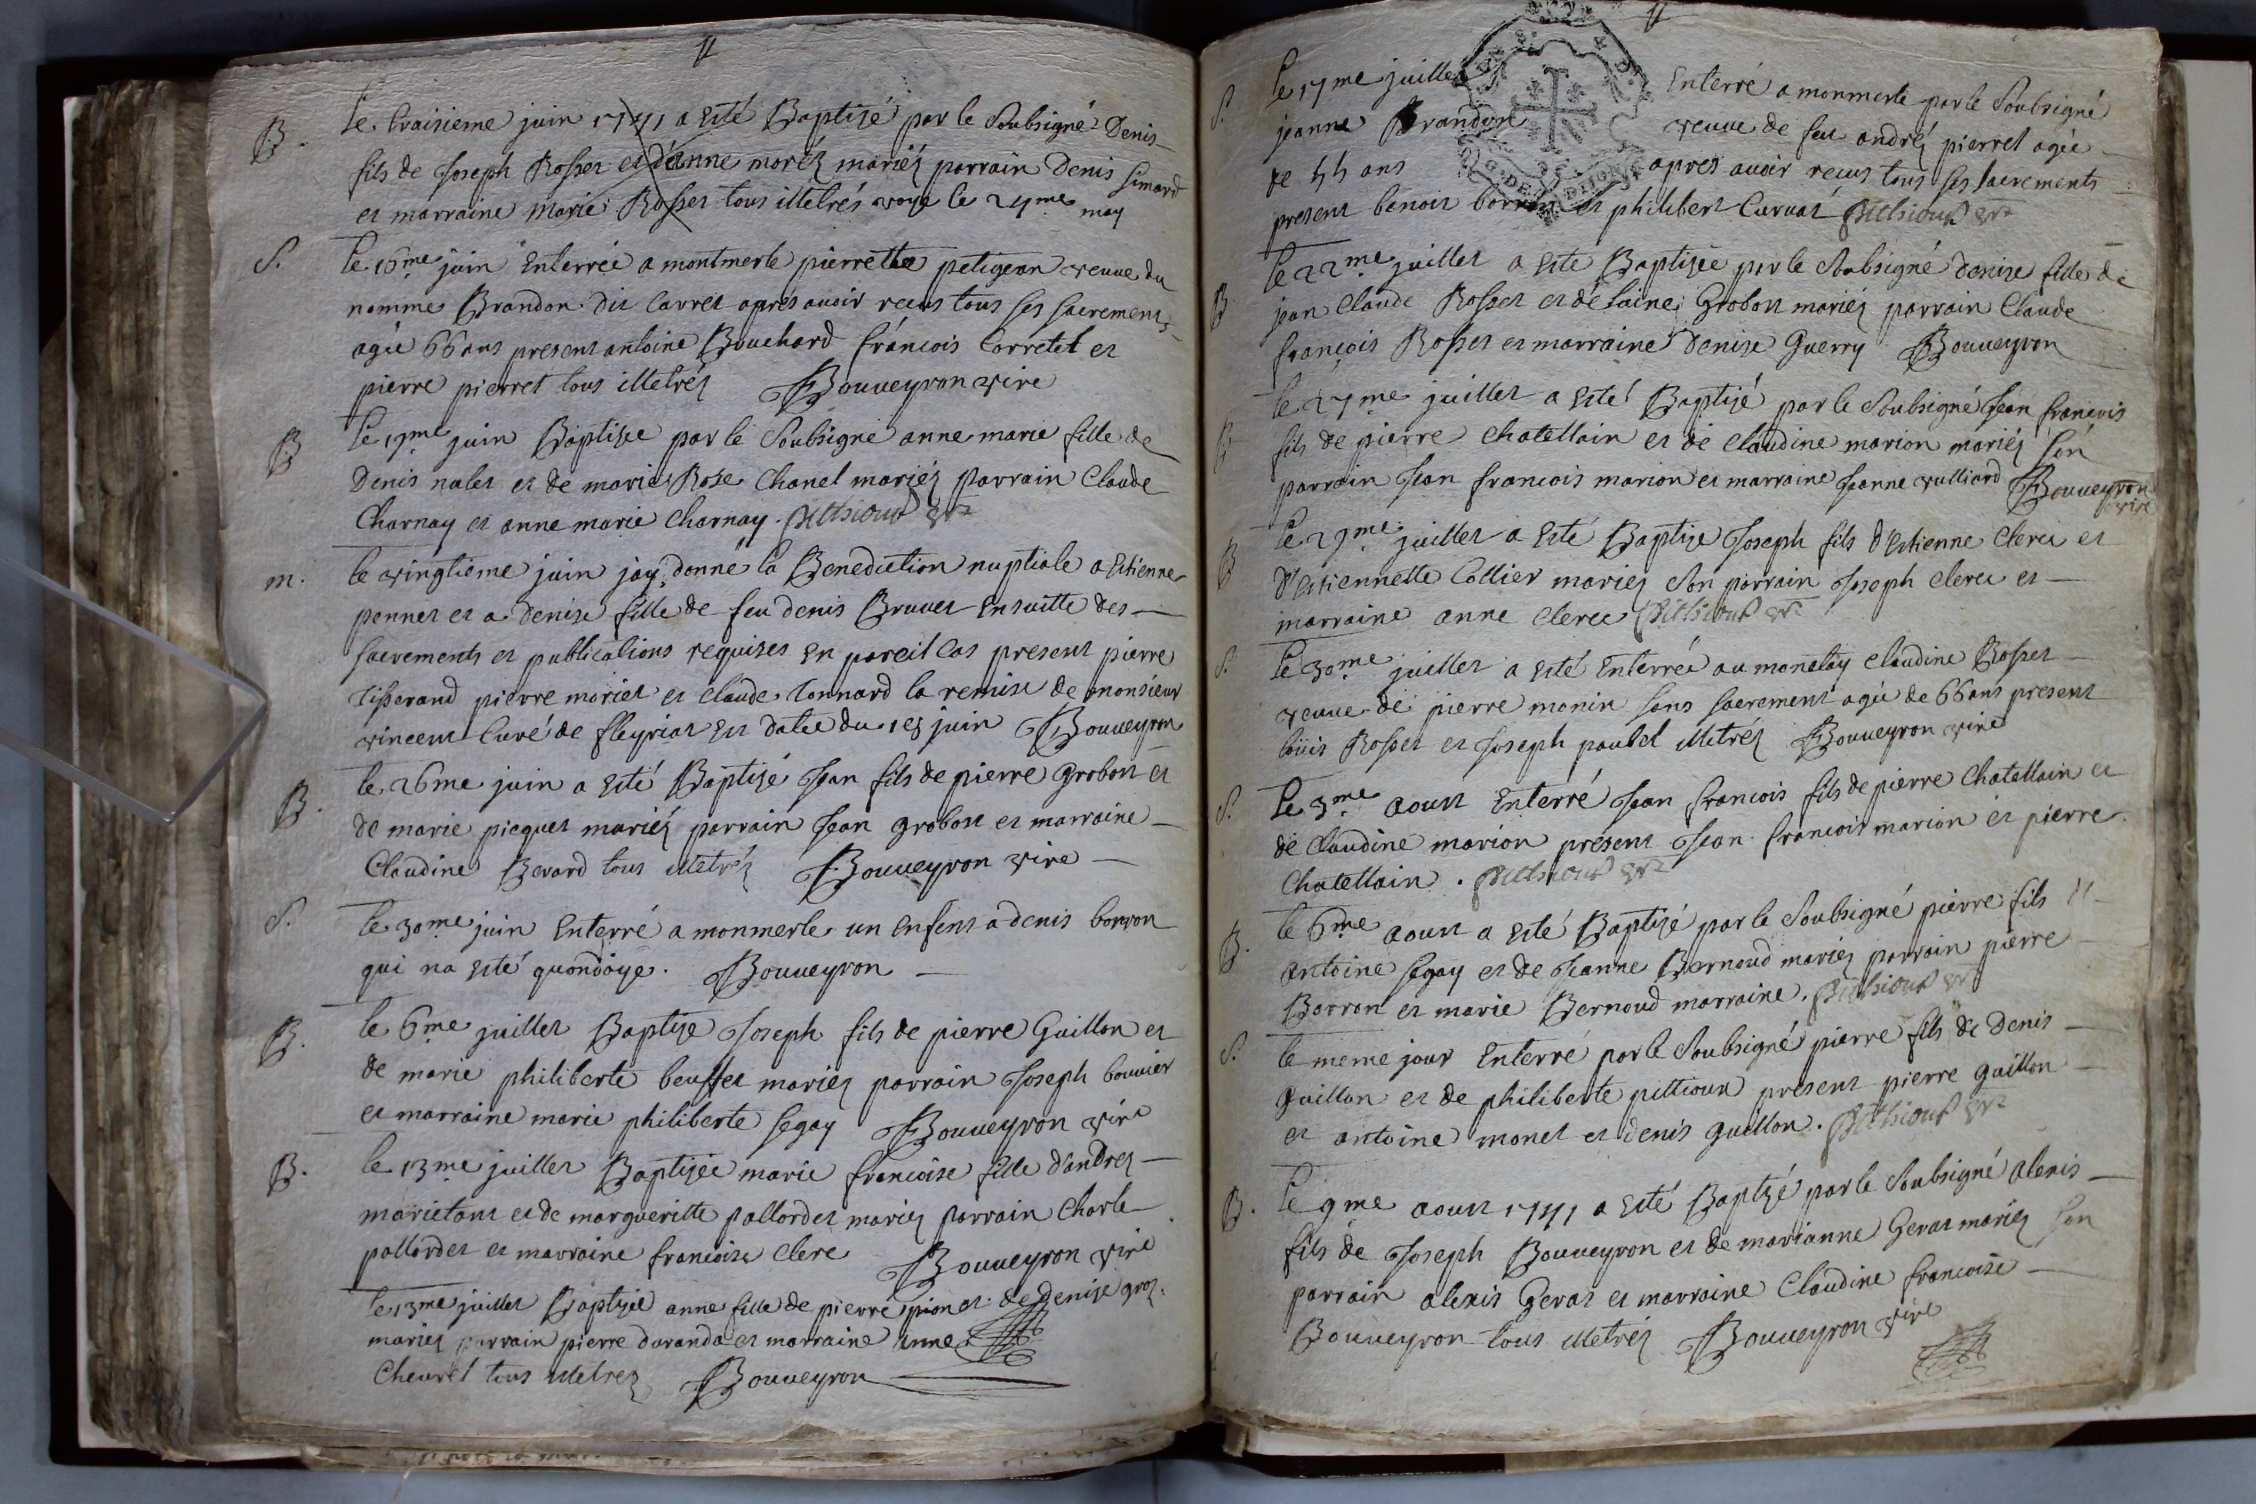 B. Le troisieme juin 1741 a esté Baptizé par le Soubsigné Denis
fils de Joseph Rosset et d'anne moréz mariéz parrain Denis Simard
et marraine marie Rosset tous illetrés voye le 24me may
S. Le 16me juin Enterrée a montmerle pierrette petigean veuve du
nomme Brandon dit Carret apres avoir recus tous ses sacrements
agée 66 ans present antoine Bouchard françois Corretel et
pierre pierret tous illetréz Bouveyron vire
B Le 17me juin Baptizée par le Soubsigné anne marie fille de
Denis nalet et de marie Rose Chanel mariéz parrain Claude
Charnay et anne marie Charnay.
m. le vingtieme juin jay donné la Benediction nuptiale a Estienne
pennet et a Denise fille de feu denis Bruuet Ensuitte des
sacrements et publications requises En pareil Cas present pierre
Tisserand pierre moriet et Claude Tonnard la remise de monsieur
vincent Curé de fleyriat En datee du 18 juin Bouveyron
B. le 26me juin a esté Baptizé Jean fils de pierre Grobon et
de marie picquet mariéz parrain Jean grobon et marraine
Claudine Bevard tous illetréz Bouveyron vire
S. Le 30me juin Enterré a monmerle un Enfent a denis borron
qui na esté quondoye. Bouveyron
B. le 6me juillet Baptize Joseph fils de pierre Guillon et
de marie philiberte beuffet mariez parrain Joseph bouvier
et marraine marie philiberte Segay Bouveyron vire
B. le 13me juillet Baptizée marie françoise fille d'andrez
marietant et de margueritte pallordet mariez parrain Charle
pallordet et marraine francoise Clere Bouveyron vire
le 13me juillet Baptizée anne fille de pierre pion et de Denise groz
mariez parrain pierre duranda et marraine anne
Cheurel tous illetrez Bouveyron
S. Le 17me juillet Enterré a monmerle par le Soubsigné
jeanne Brandon veuve de feu andréz pierret agée
de 55 ans apres avoir recus tous ses sacrements
present benoit borron et philibert Curvat
B le 22me juillet a esté Baptizée par le Soubsigné denise fille de
jean Claude Rosset et de laine Grobon mariéz parrain Claude
françois Rosset et marraine Denise Guerry Bouveyron
B le 27me juillet a esté Baptizé par le Soubsigné Jean francois
fils de pierre Chatellain et de Claudine marion mariéz Son
parrain Jean francois marion et marraine Jeanne vulliard Bouveyron
vire
B Le 29me juillet a Esté Baptize Joseph fils d'Estienne Clerc et
d'Estiennette Collier mariez Son parrain Joseph Clerc et
marraine anne Clerc
S. Le 30me juillet a esté Enterrée au monetay Claudine Rosset
veuve de pierre monin sans sacrement agée de 66 ans present
louis Rosset et Joseph paubel illetréz Bouveyron vire
S. Le 3me aoust Enterré Jean francois fils de pierre Chatellain et
de Claudine marion present Jean francois marion et pierre
Chatellain.
B. le 6me aoust a esté Baptizé par le Soubsigné pierre fils
antoine Segay et de Jeanne Bernoud mariez parrain pierre
Borron et marie Bernoud marraine.
S. le meme jour Enterré par le Soubsigné pierre fils de Denis
guillon et de philiberte pittioux present pierre guillon
et antoine monet et denis guillon.
B. Le 9me aoust 1741 a esté Baptizé par le Soubsigné alexis
fils de Joseph Bouveyron et de marianne Gevat mariez Son
parrain alexis Gevat et marraine Claudine francoise
Bouveyron tous illetréz Bouveyron vire